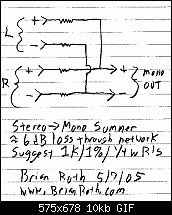 +
L
-
+ + mono
R
- - OUT
Stereo → Mono Summer
≈ 6dB loss through network
Suggest 1K/1%/¼w R's
Brian Roth 5/7/05
www.BrianRoth.com
575x678 10kb GIF